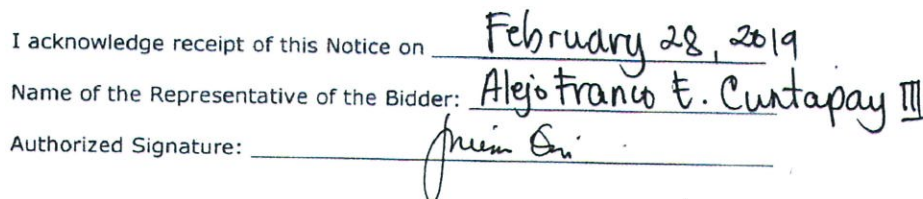 I acknowledge receipt of this Notice on February 28, 2019
Name of the Representative of the Bidder: Alejo Franco E. Cuntapay III
Authorized Signature: